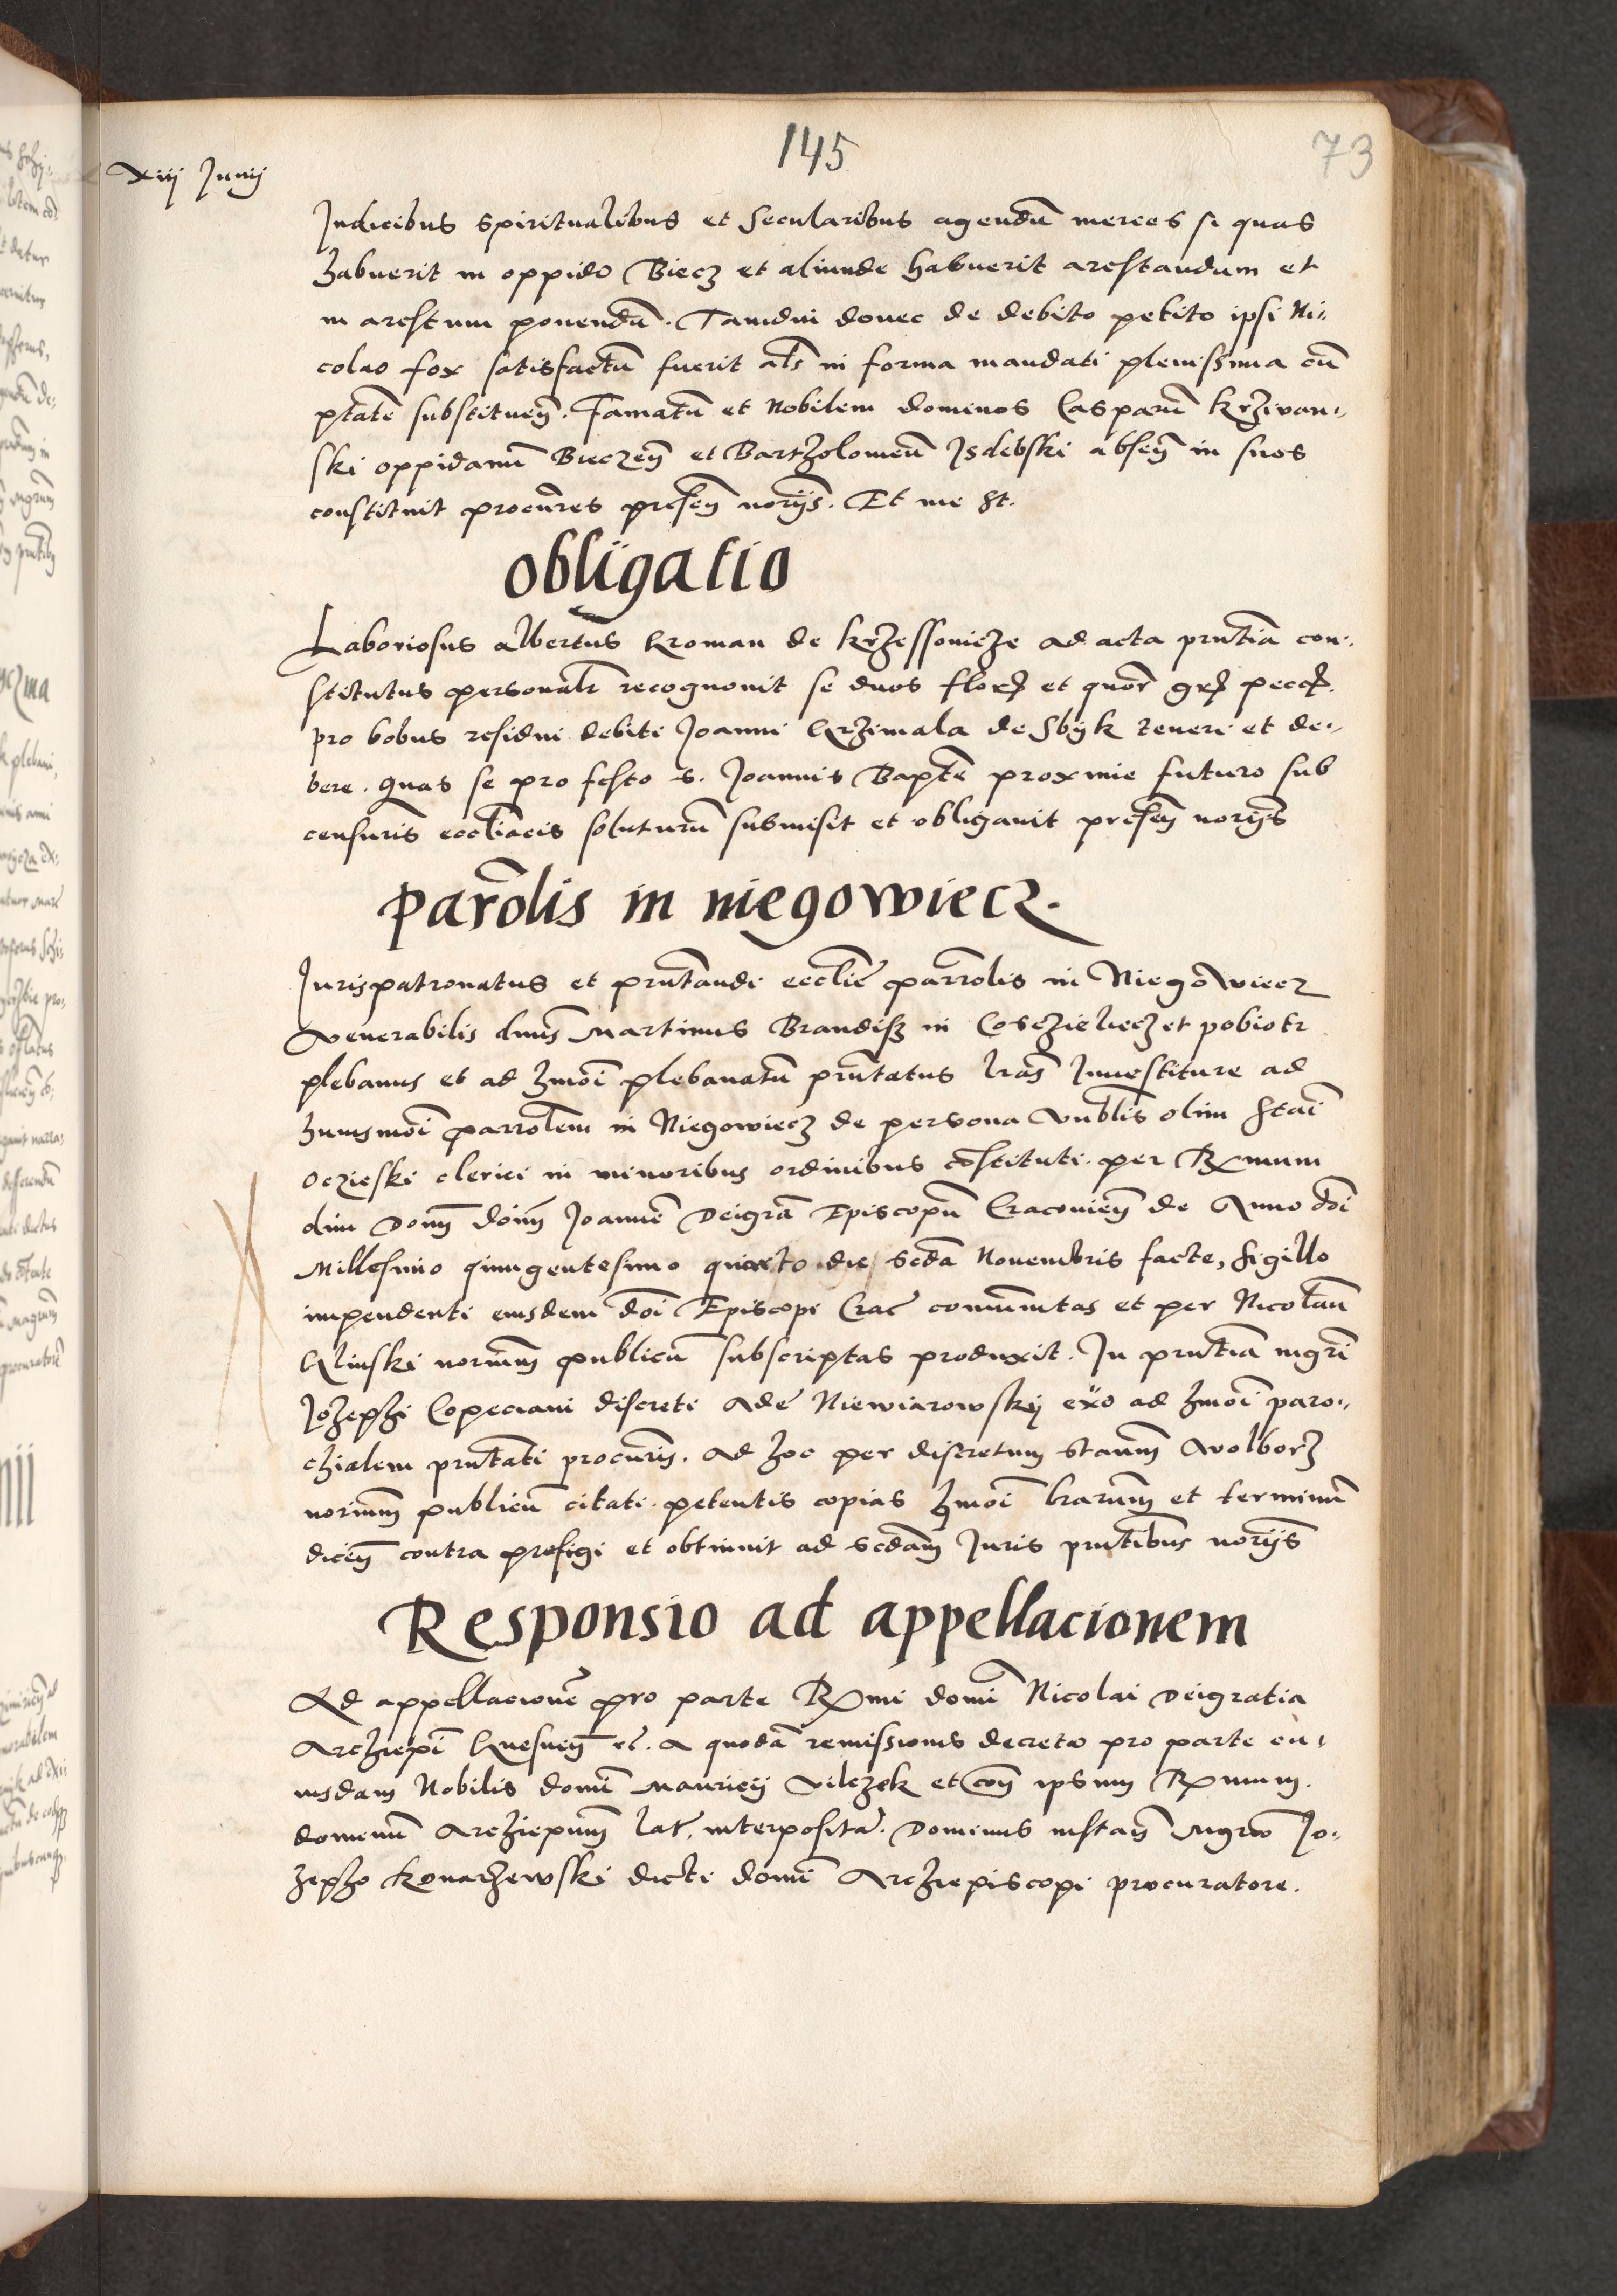 145
73
xiij Junij
Judicibus spiritualibus et secularibus agendũ merces si quas
habuerit in oppido Biecz et aliunde habuerit arestandum et
in arestum ponendũ. Tamdiu donec de debito petito ipsi Ni:
colao fox satisfactũ fuerit als in forma mandati plenissima cũ
ptate substituen̄. Famatũ et Nobilem dominos Casparũ Krzivan:
ski oppidanũ Bieczen̄ et Bartholomeũ Jsdebski absen̄ in suos
constituit procures presen̄ norijs. Et me st.
obligatio
Laboriosus albertus Kroman de Krzessonicze ad acta pñtia con:
stitutus personalr recognouit se duos flor et quor gr pecc.
pro bobus residui debiti Joanni Krzimala de Sbijk teneri et de:
bere. quas se pro festo s. Joannis Bapte proxime futuro sub
censuris eccliacis soluturũ submisit et obligauit presen̄ norijs
parrolis in niegowiecz.
Jurispatronatus et pñtandi ecclie parrolis in Niegowiecz
venerabilis dnus Martinus Brandisz in Cosczielecz et pobiotr
plebanus et ad hmoi plebanatũ pñtatus lras Jnuestiture ad
huiusmoi parrolem in Niegowiecz de persona vnblis olim Stai
Oczieski clerici in minoribus ordinibus cõstituti. per Rmum
olim Donũ doĩm Joannẽ Deigrã Episcopũ Cracovien̄ de Anno dõi
Millesimo quingentesimo quarto die scda Nouembris facte, sigillo
impendenti eiusdem dõi Episcopi Crac comunitas et per Nicolaũ
Klinski noriũm publicũ subscriptas produxit. Jn pñtia mgri
Jozephi Copeciani discreti Ade Niewiarowskij ex̃o ad hmoi paro:
chialem pñtati procuris. Ad hoc per discretum Staũm Wolborz
noriũm publicũ citati. petentis copias hmoi lrarũm et terminũ
dicen̄ contra prefigi et obtinuit ad scdam Juris pñtibus norijs
Responsio ad appellacionem
Ad appellacionẽ pro parte Rmi domi Nicolai Deigratia
Archiepi Gnesnen̄ rc. a quodã remissionis decreto pro parte cu:
iusdam Nobilis domi Mauricij Vilczek et con̄ ipsum Rmum.
dominũ Archiepũm lat. interposita. Dominus instan̄ Mgro Jo:
zepho Konarzewski dicti domi Archiepiscopi procuratore.